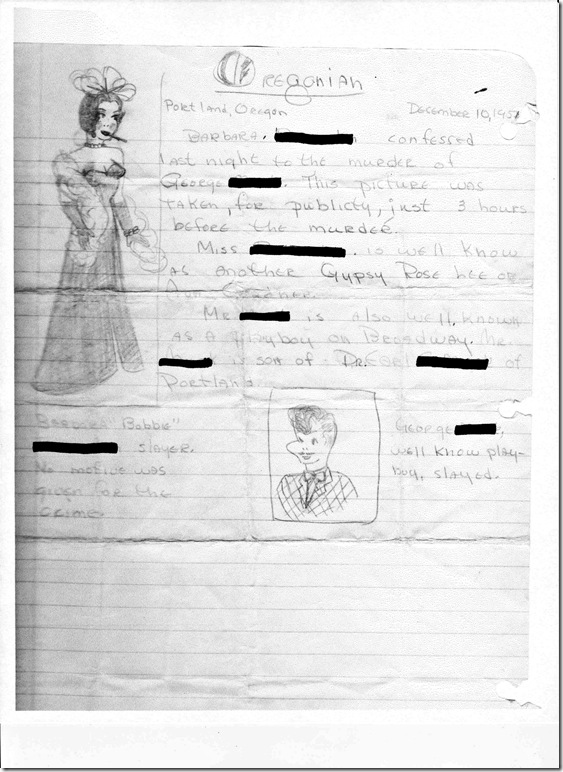 OREGONIAN
Portland, Oregon
December 10, 1951
Barbara. confessed
last night to the murder of
George . This picture was
taken, for publicty, just 3 hours
before the murder.
Miss . is well know
as another Gypsy Rose Lee or
Mr is also well, known
as a playboy on Broadway. Mr.
is son of Dr. of
Portland
Barbara "Bobbie"
slayer.
No motive was
given for the
crime
George ,
well know play-
boy, slayed.